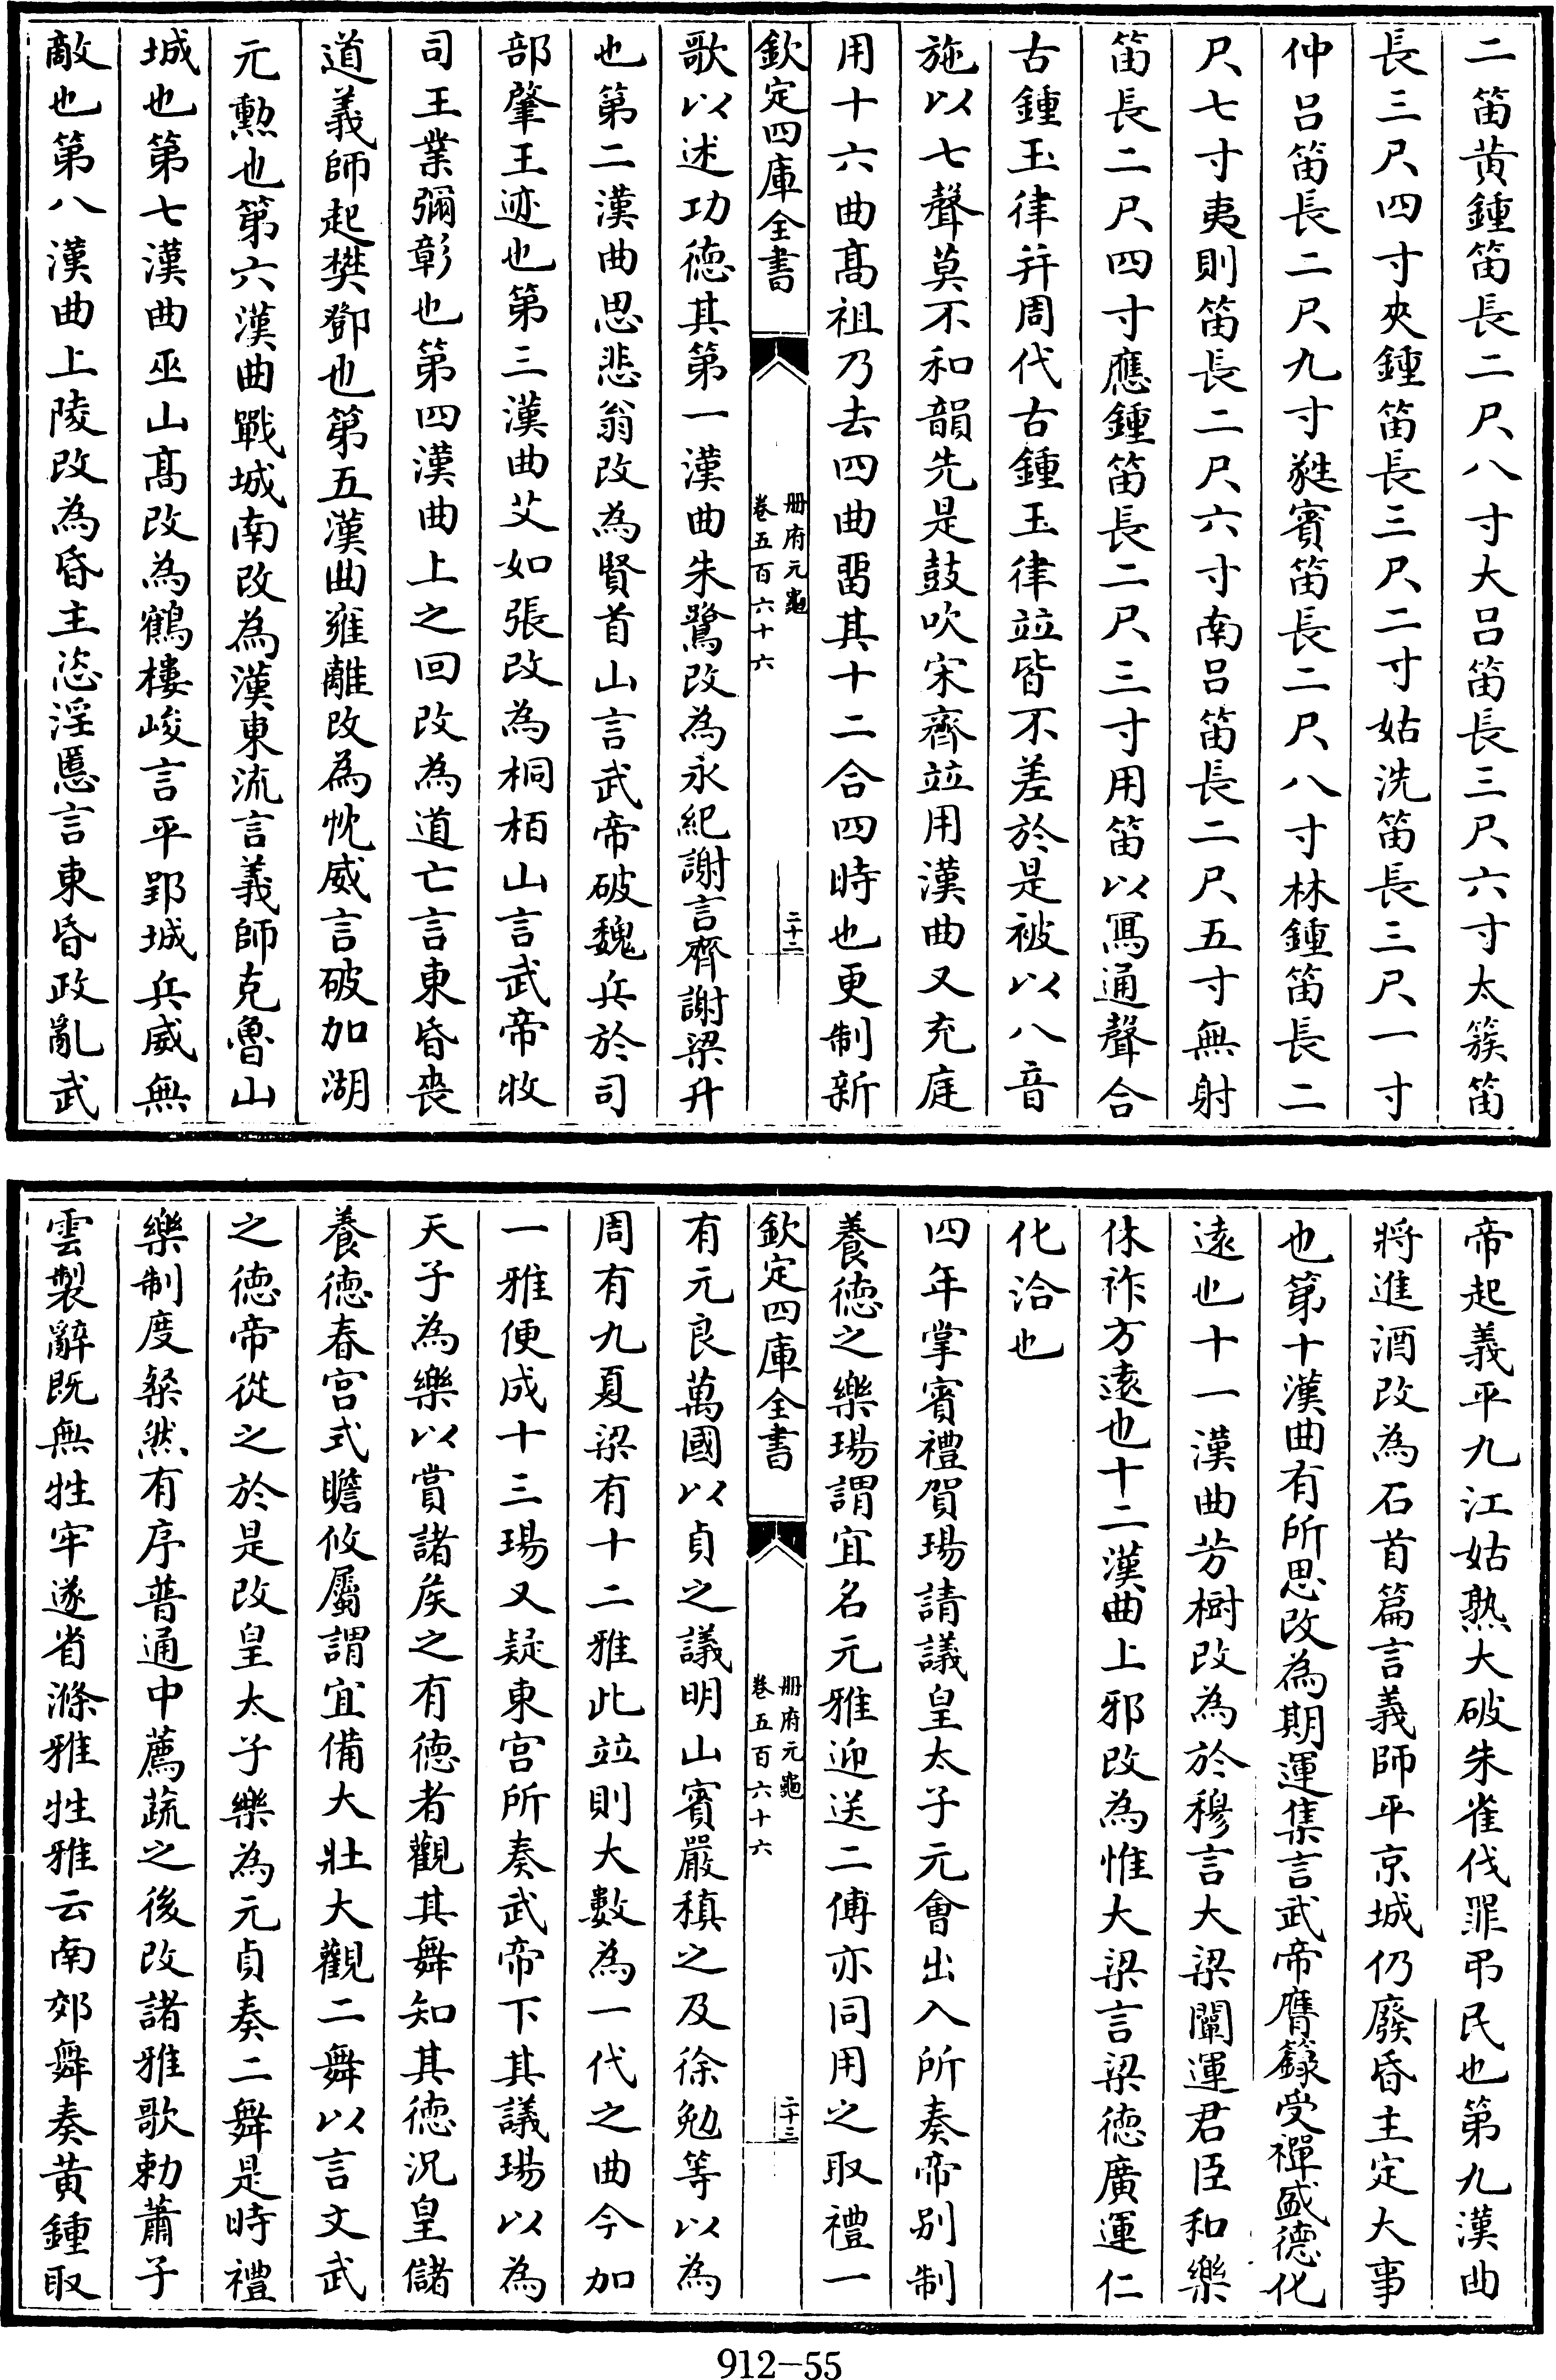 二笛黄鍾笛長二尺八寸大吕笛長三尺六寸太簇笛
長三尺四寸夾鍾笛長三尺二寸姑洗笛長三尺一寸
仲吕笛長二尺九寸蕤賓笛長二尺八寸林鍾笛長二
尺七寸夷則笛長二尺六寸南吕笛長二尺五寸無射
笛長二尺四寸應鍾笛長二尺三寸用笛以寫通聲合
古鍾玉律并周代古鍾玉律竝皆不差於是被以八音
施以七聲莫不和韻先是鼓吹宋齊竝用漢曲又充庭
用十六曲髙祖乃去四曲畱其十二合四時也更制新
欽定四庫全書
册府元龜
卷五百六十六
二十二
歌以述功徳其第一漢曲朱鷺改為永紀謝言齊謝梁升
也第二漢曲思悲翁改為賢首山言武帝破魏兵於司
部肇王迹也第三漢曲艾如張改為桐栢山言武帝牧
司王業彌彰也第四漢曲上之回改為道亡言東昏喪
道義師起樊鄧也第五漢曲雍離改為忱威言破加湖
元勲也第六漢曲戰城南改為漢東流言義師克魯山
城也第七漢曲巫山髙改為鶴樓峻言平郢城兵威無
敵也第八漢曲上陵改為昏主恣淫慝言東昏政亂武
帝起義平九江姑熟大破朱雀伐罪弔民也第九漢曲
將進酒改為石首篇言義師平京城仍廢昏主定大事
也第十漢曲有所思改為期運集言武帝膺籙受禪盛徳化
逺也十一漢曲芳樹改為於穆言大梁闡運君臣和樂
休祚方逺也十二漢曲上邪改為惟大梁言梁徳廣運仁
化洽也
四年掌賓禮賀瑒請議皇太子元會出入所奏帝别制
養徳之樂瑒謂宜名元雅迎送二傅亦同用之取禮一
欽定四庫全書
册府元龜
卷五百六十六
二十三
有元良萬國以貞之議明山賓嚴稹之及徐勉等以為
周有九夏梁有十二雅此竝則大數為一代之曲今加
一雅便成十三瑒又疑東宫所奏武帝下其議瑒以為
天子為樂以賞諸矦之有徳者觀其舞知其徳況皇儲
養徳春宫式瞻攸屬謂宜備大壯大觀二舞以言文武
之徳帝從之於是改皇太子樂為元貞奏二舞是時禮
樂制度粲然有序普通中薦蔬之後改諸雅歌勅蕭子
雲製辭既無牲牢遂省滌雅牲雅云南郊舞奏黄鍾取
912-55